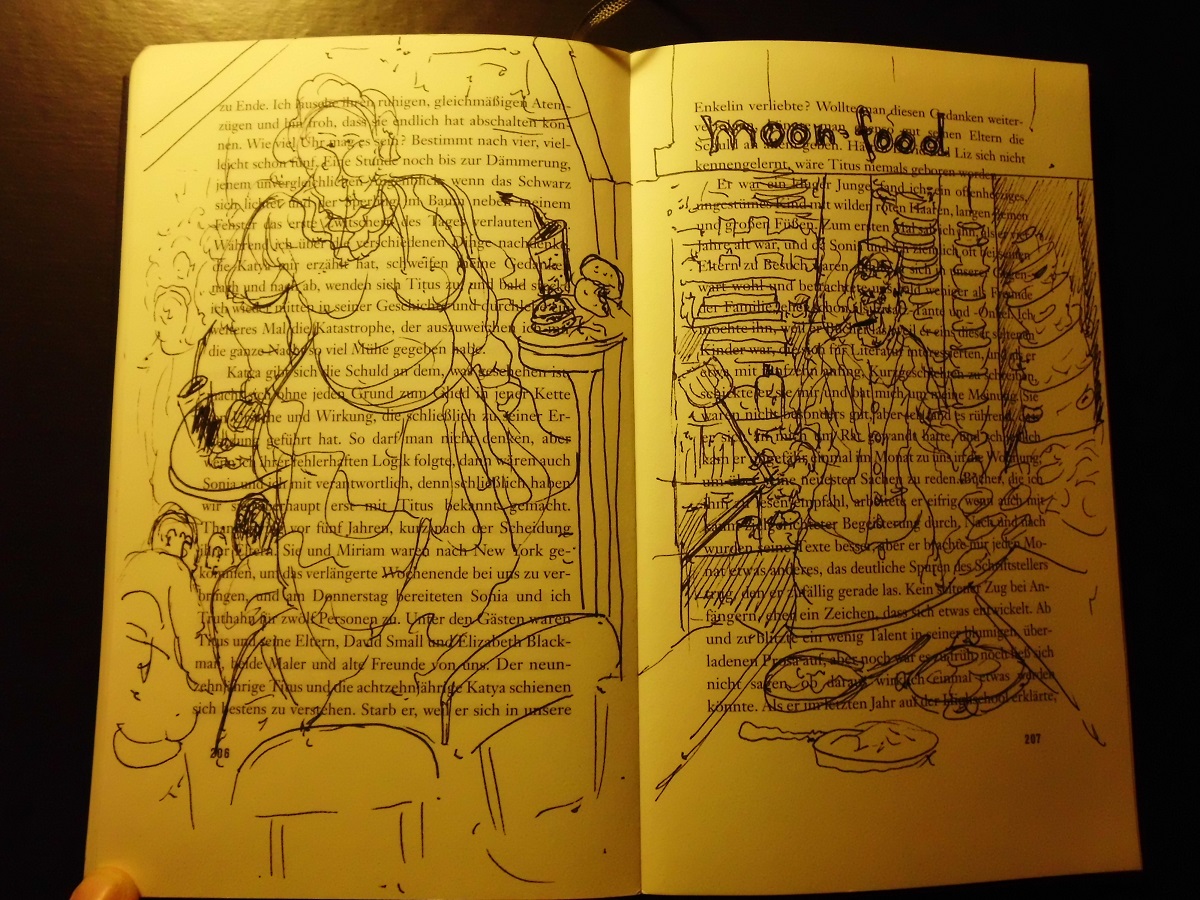 zu Ende. Ich lausche ihren ruhigen, gleichmäßigen Atem-
zügen und bin froh, dass sie endlich hat abschalten kön-
nen. Wie viel Uhr mag es sein? Bestimmt nach vier, viel-
leicht schon fünf. Eine Stunde noch bis zur Dämmerung,
jenem unvergleichlichen Augenblick, wenn das Schwarz
sich lichtet und der Sperling im Baum neben meinem
Fenster das erste Zwitschern des Tages verlauten
Während ich über die verschiedenen Dinge nachdenke,
die Katya mir erzählt hat, schweifen meine Gedanken
nach und nach ab, wenden sich Titus zu, und bald
ich wieder mitten in seiner Geschichte und durchlebe
weiteres Mal die Katastrophe, der auszuweichen ich
die ganze Nacht so viel Mühe gegeben habe.
Katya gibt sich die Schuld an dem, was geschehen ist,
macht sich ohne jeden Grund zum Glied in jener Kette
Ursache und Wirkung, die schließlich zu seiner Er-
mordung geführt hat. So darf man nicht denken, aber
wenn ich ihrer fehlerhaften Logik folgte, dann wären auch
Sonia und ich mit verantwortlich, denn schließlich haben
wir sie überhaupt erst mit Titus bekannt gemacht.
Thanksgiving vor fünf Jahren, kurz nach der Scheidung
ihrer Eltern. Sie und Miriam waren nach New York ge-
kommen, um das verlängerte Wochenende bei uns zu ver-
bringen, und am Donnerstag bereiteten Sonia und ich
Truthahn für zwölf Personen zu. Unter den Gästen waren
Titus und seine Eltern, David Small und Elizabeth Black-
man, beide Maler und alte Freunde von uns. Der neun-
zehnjährige Titus und die achtzehnjährige Katya schienen
sich bestens zu verstehen. Starb er, weil er sich in unsere
206
Enkelin verliebte? Wollte man diesen Gedanken weiter-
man gut seinen Eltern die
Schuld Liz sich nicht
kennengelernt, wäre Titus niemals geboren worden.
moon food
Er war ein kluger Junge, fand ich, ein offenherziges,
ungestümes Kind mit wilden roten Haaren, langen
und großen Füßen. Zum ersten Mal sah ich ihn, als er vier
Jahre alt war, und da Sonia und ich ziemlich oft bei seinen
Eltern zu Besuch waren, sich in unserer Gegen-
wart wohl und betrachtete uns bald weniger als Freunde
der Familie, eher schon als Tante und Onkel. Ich
mochte ihn, weil er Bücher las, weil er eins dieser seltenen
Kinder war, die sich für Literatur interessierten, und als er
etwa mit fünfzehn anfing, Kurzgeschichten zu schreiben,
schickte er sie mir und bat mich um meine Meinung. Sie
waren nicht besonders gut, aber ich fand es rührend, dass
er sich an mich um Rat gewandt hatte, und schließlich
kam er ungefähr einmal im Monat zu uns in die Wohnung,
um über seine neuesten Sachen zu reden. Bücher, die ich
ihm zu lesen empfahl, arbeitete er eifrig, wenn auch mit
Begeisterung durch. Nach und nach
wurden seine Texte besser, aber er brachte mir jeden Mo-
nat etwas anderes, das deutliche Spuren des Schriftstellers
trug, den er zufällig gerade las. Kein seltener Zug bei An-
fängern, eher ein Zeichen, dass sich etwas entwickelt. Ab
und zu blitzte ein wenig Talent in seiner blumigen, über-
ladenen Prosa auf, aber noch war es zu früh, noch ließ sich
nicht sagen, ob daraus wirklich einmal etwas werden
könnte. Als er im letzten Jahr auf der Highschool erklärte,
207